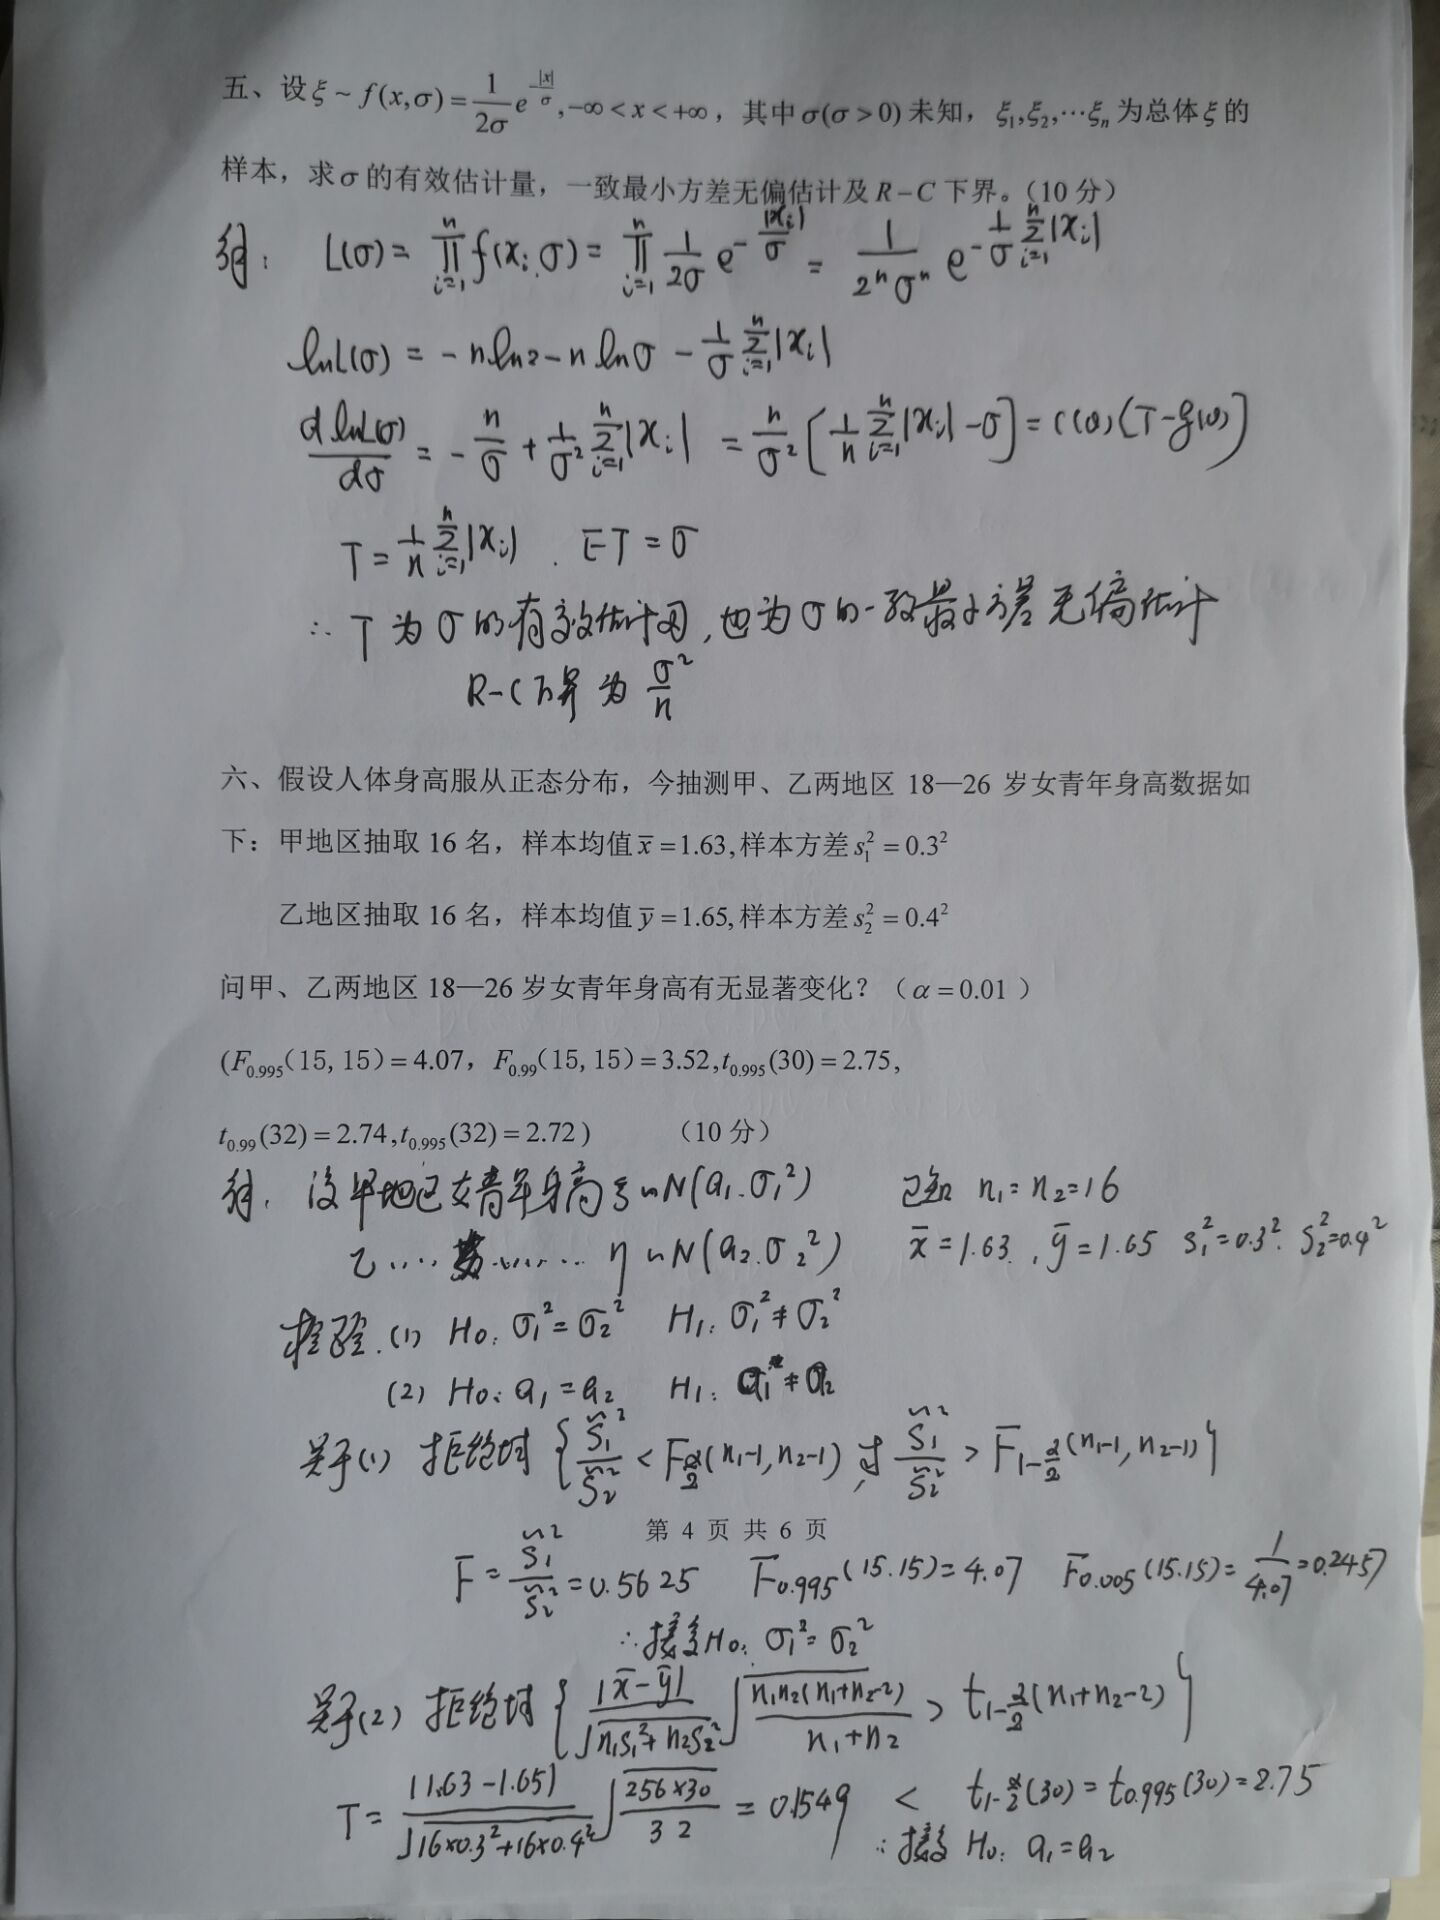 五、设ξ ~ f(x,σ) = 1/(2σ) e^(-|x|/σ), -∞ < x < +∞，其中σ(σ > 0) 未知，ξ₁,ξ₂,⋯ξₙ 为总体ξ的
样本，求σ的有效估计量，一致最小方差无偏估计及R-C 下界。（10 分）
解： L(σ) = ∏_{i=1}^n f(xᵢ.σ) = ∏_{i=1}^n 1/(2σ) e^(-|xᵢ|/σ) = 1/(2ⁿσⁿ) e^(-(1/σ)∑_{i=1}^n |xᵢ|)
lnL(σ) = -n ln2 - n lnσ - (1/σ) ∑_{i=1}^n |xᵢ|
d lnL(σ)/dσ = -n/σ + (1/σ²) ∑_{i=1}^n |xᵢ| = n/σ² [(1/n) ∑_{i=1}^n |xᵢ| - σ] = C(θ)(T-g(θ))
T = (1/n) ∑_{i=1}^n |xᵢ| . ET = σ
∴ T 为 σ 的有效估计, 也为 σ 的一致最小方差无偏估计
R-C下界为 σ²/n
六、假设人体身高服从正态分布，今抽测甲、乙两地区 18—26 岁女青年身高数据如
下：甲地区抽取 16 名，样本均值 x̄ = 1.63, 样本方差 s₁² = 0.3²
乙地区抽取 16 名，样本均值 ȳ = 1.65, 样本方差 s₂² = 0.4²
问甲、乙两地区 18—26 岁女青年身高有无显著变化？（α = 0.01 ）
(F₀.₉₉₅（15, 15）= 4.07， F₀.₉₉（15, 15）= 3.52, t₀.₉₉₅(30) = 2.75,
t₀.₉₉(32) = 2.74, t₀.₉₉₅(32) = 2.72 ) （10 分）
解. 设甲地区女青年身高 ξ ~ N(a₁.σ₁²) 已知 n₁ = n₂ = 16
乙.... ...... η ~ N(a₂.σ₂²) x̄ = 1.63. , ȳ = 1.65 s₁² = 0.3². s₂² = 0.4²
检验.(1) H₀: σ₁² = σ₂² H₁: σ₁² ≠ σ₂²
(2) H₀: a₁ = a₂ H₁: a₁ ≠ a₂
关于(1) 拒绝域 {S̃₁²/S̃₂² < F_{α/2}(n₁-1, n₂-1) 或 S̃₁²/S̃₂² > F_{1-α/2}(n₁-1, n₂-1)}
第 4 页 共 6 页
F = S̃₁²/S̃₂² = 0.5625 F₀.₉₉₅(15.15) = 4.07 F₀.₀₀₅(15.15) = 1/4.07 = 0.2457
∴ 接受H₀: σ₁² = σ₂²
关于(2) 拒绝域 {|x̄-ȳ|/√(n₁s₁²+n₂s₂²) √(n₁n₂(n₁+n₂-2)/(n₁+n₂)) > t_{1-α/2}(n₁+n₂-2)}
T = |1.63-1.65|/√(16×0.3²+16×0.4²) √(256×30/32) = 0.1549 < t_{1-α/2}(30) = t₀.₉₉₅(30) = 2.75
∴ 接受 H₀: a₁ = a₂